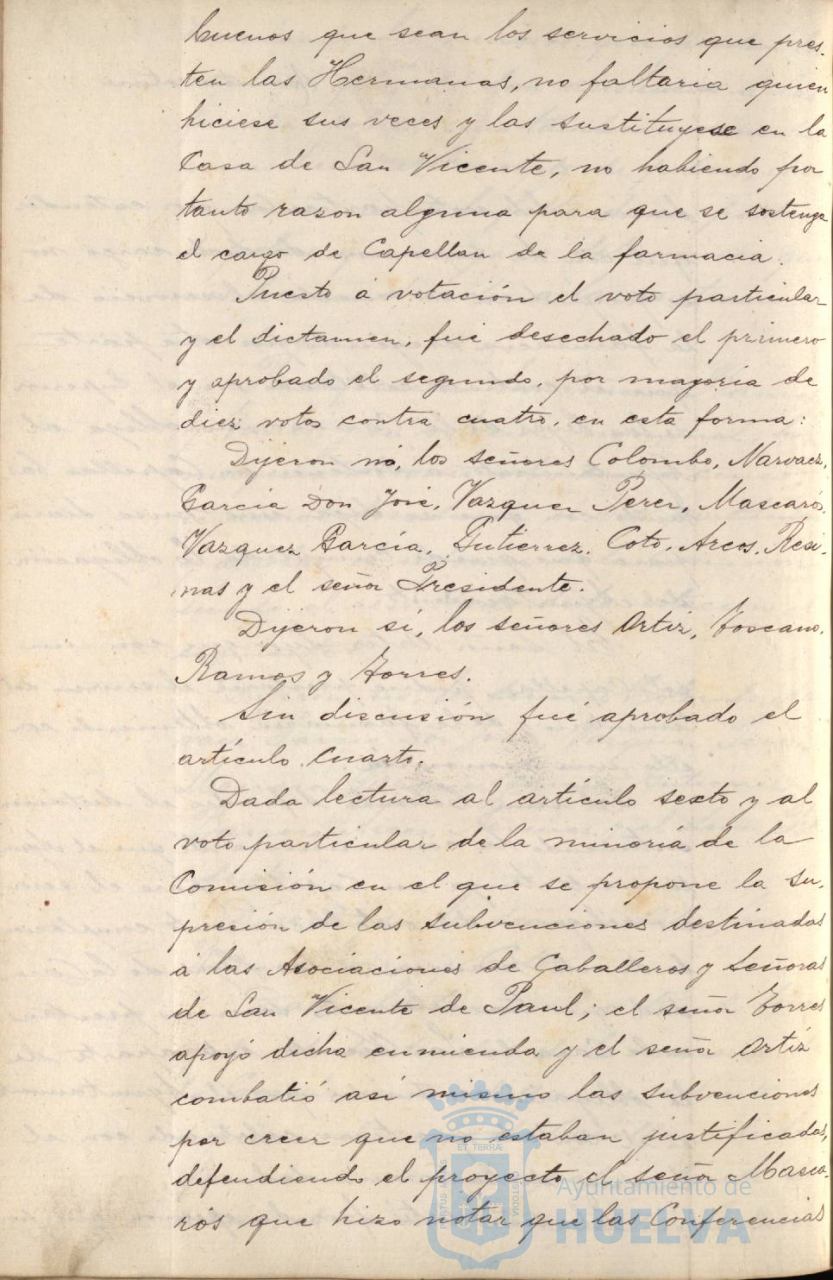 buenos que sean los servicios que pres-
ten las Hermanas, no faltaria quien
hiciese sus veces y las sustituyese en la
Casa de San Vicente, no habiendo por
tanto razon alguna para que se sostenga
el cargo de Capellan de la farmacia.
Puesto á votación el voto particular
y el dictamen, fué desechado el primero
y aprobado el segundo, por mayoria de
diez votos contra cuatro, en esta forma:
Dijeron nó, los señores Colombo, Narvaez,
Garcia Don José, Vazquez Perez, Mascarós,
Vazquez García, Gutierrez, Coto, Arcos, Resi-
nas y el señor Presidente.
Dijeron sí, los señores Ortiz, Toscano,
Ramos y Torres.
Sin discusión fué aprobado el
artículo cuarto.
Dada lectura al artículo sexto y al
voto particular de la minoría de la
Comisión en el que se propone la su-
presión de las subvenciones destinadas
á las Asociaciones de Caballeros y Señoras
de San Vicente de Paul; el señor Torres
apoyó dicha enmienda y el señor Ortiz
combatió así mismo las subvenciones
por creer que no estaban justificadas,
defendiendo el proyecto el señor Masca-
rós que hizo notar que las Conferencias
Ayuntamiento de
HUELVA